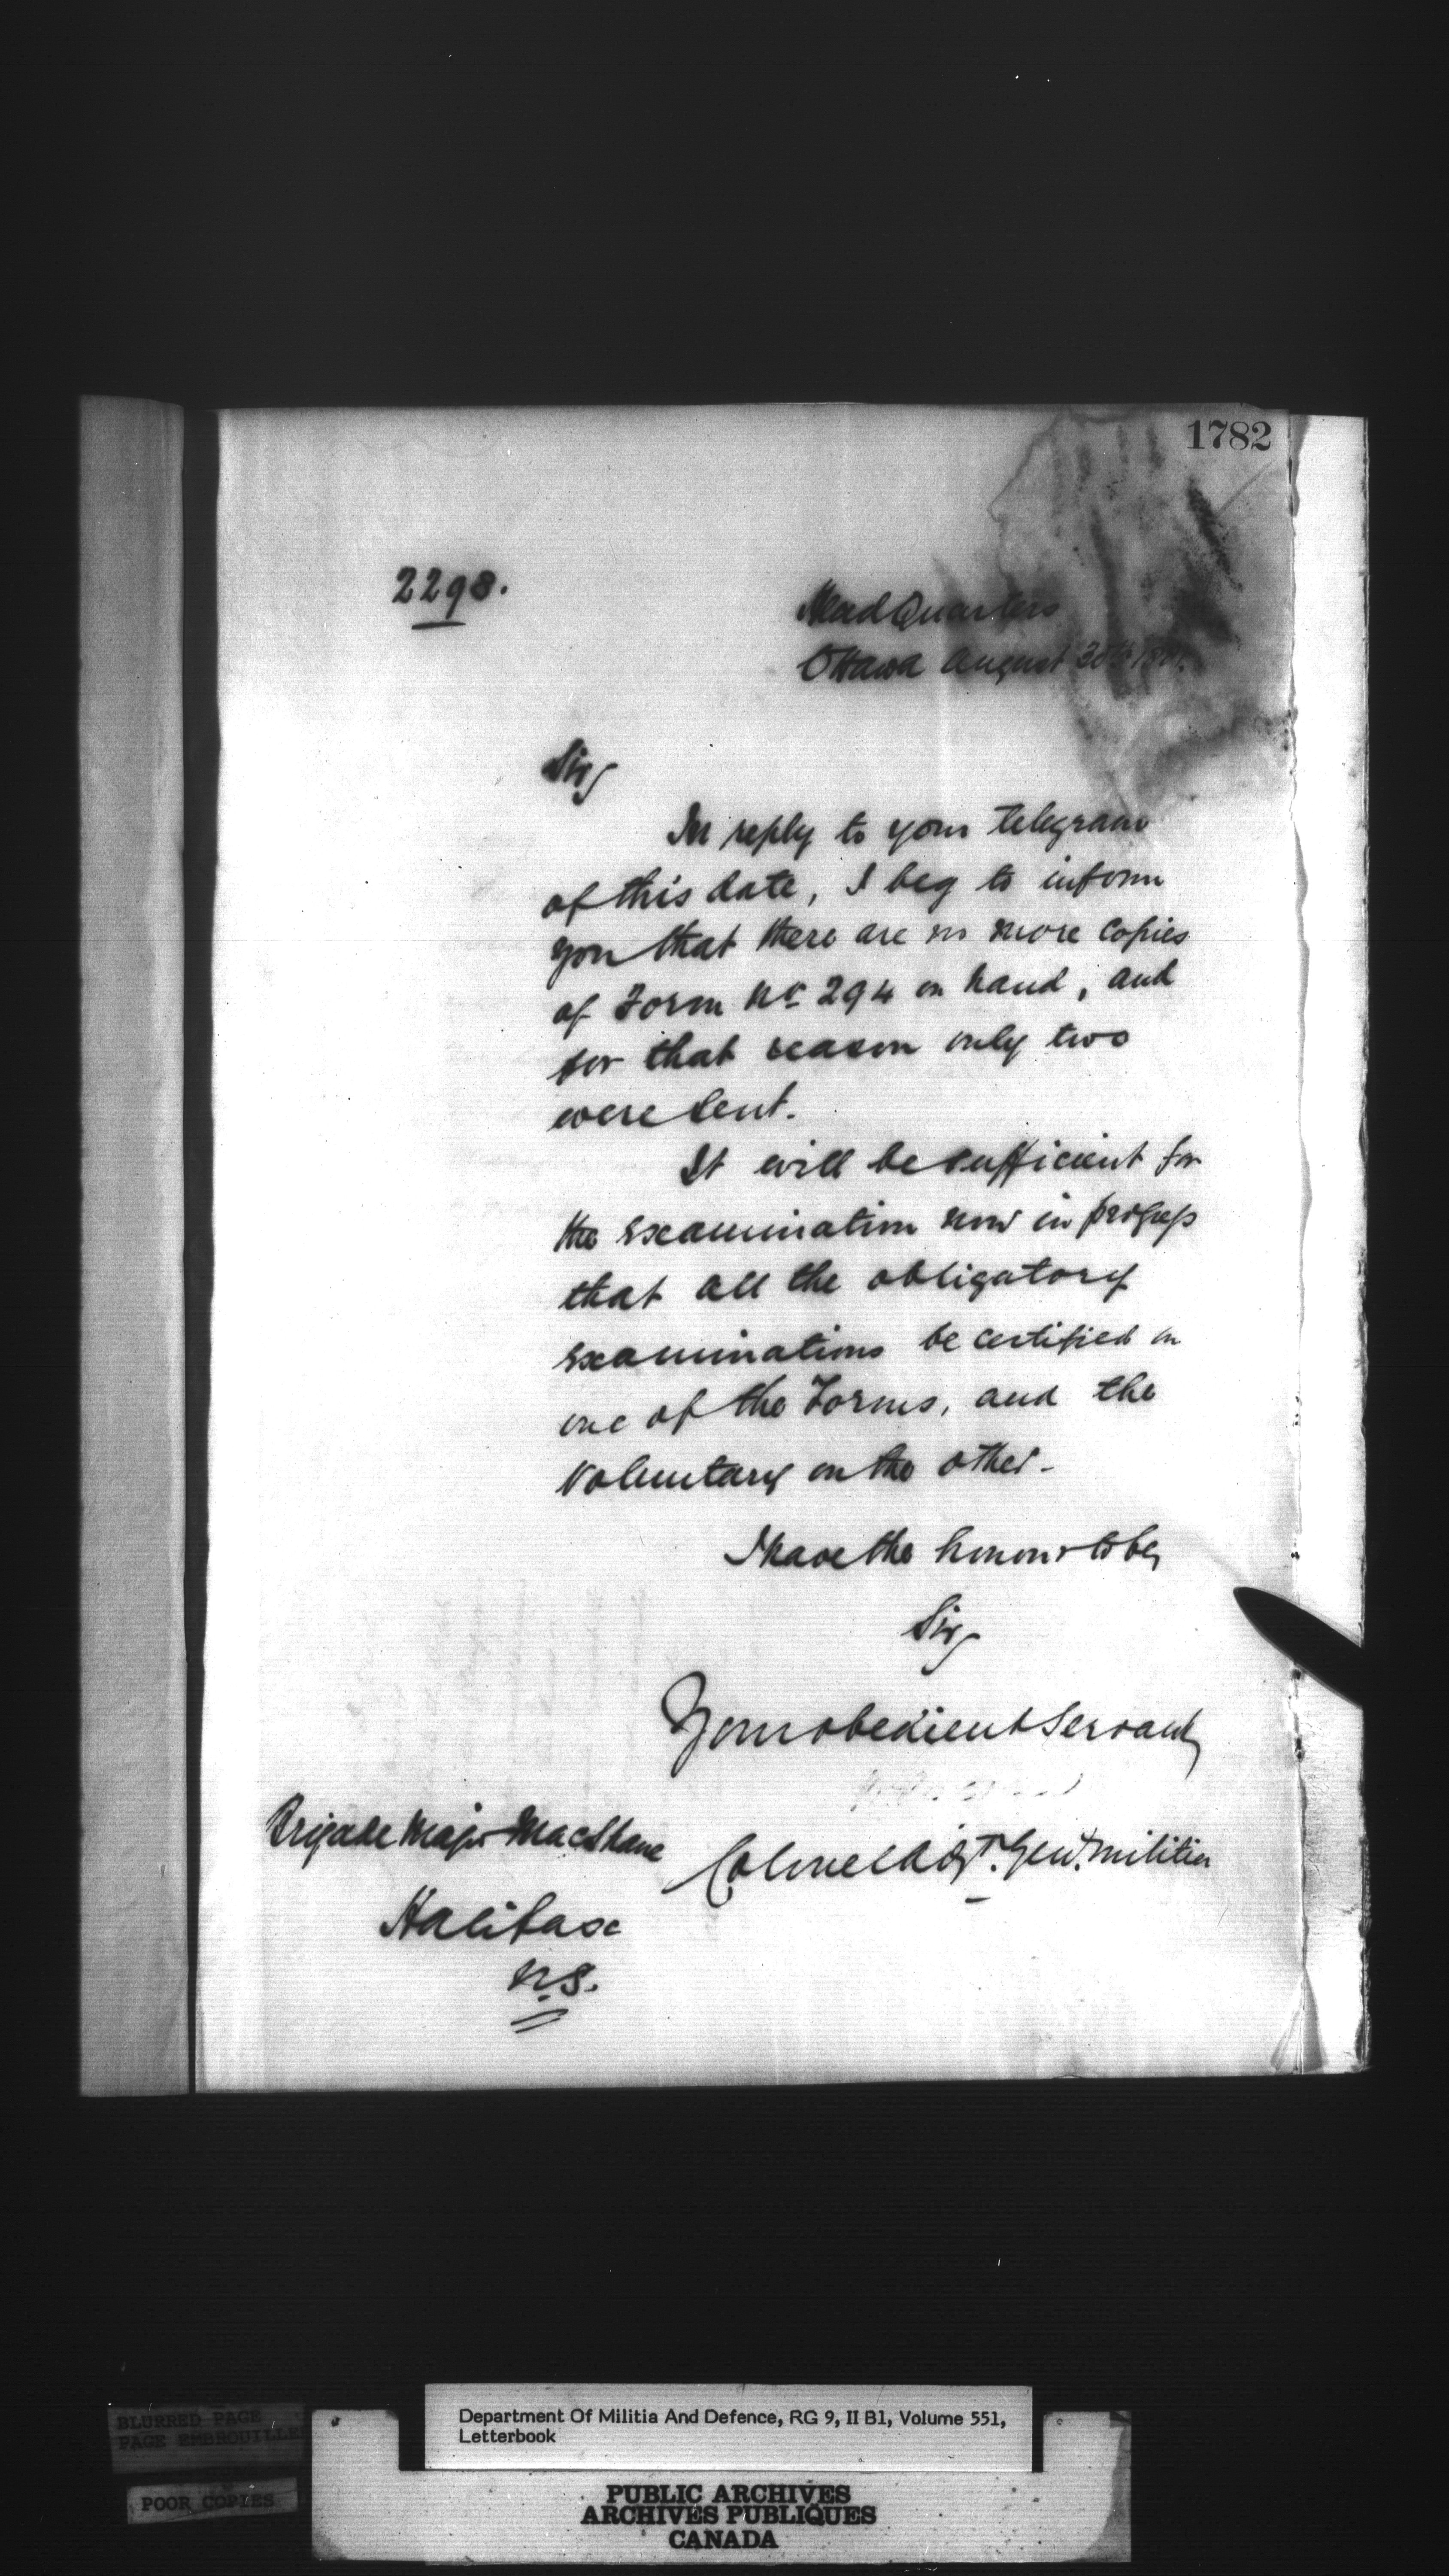 1782
2298.
Head Quarters
Ottawa August 30th
Sir,
In reply to your telegram
of this date, I beg to inform
you that there are no more copies
of Form No 294 on hand, and
for that reason only two
were sent.
It will be sufficient for
the examination now in progress
that all the obligatory
examinations be certified on
one of the Forms, and the
Voluntary on the other.
I have the honour to be,
Sir,
Your obedient Servant,
Colonel Adjt. Genl. Militia
Brigade Major MacShane
Halifax
N.S.
BLURRED PAGE
PAGE EMBROUILLEE
POOR COPIES
Department Of Militia And Defence, RG 9, II B1, Volume 551,
Letterbook
PUBLIC ARCHIVES
ARCHIVES PUBLIQUES
CANADA